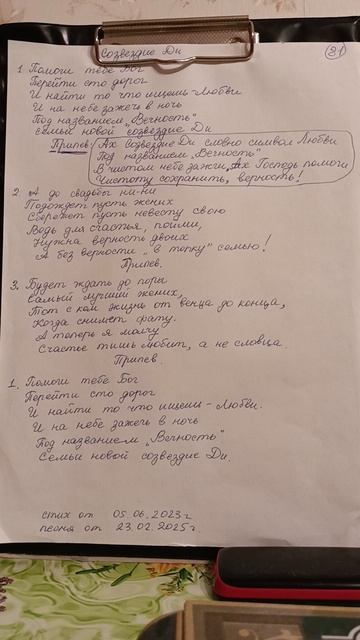 Созвездие Ди
21
1. Помоги тебе Бог
Перейти сто дорог
И найти то что ищешь - Любви
И на небе зажечь в ночь
Под названием „Вечность"
Семьи новой созвездие Ди
Припев: Ах созвездие Ди словно символ Любви
Под названием „Вечность"
В чистом небе зажги, Ах Господь помоги
Чистоту сохранить, верность!
2. А до свадьбы ни-ни
Подождет пусть жених
Сбережет пусть невесту свою
Ведь для счастья, пойми,
Нужна верность двоих
А без верности „в топку" семью!
Припев.
3. Будет ждать до поры
Самый лучший жених,
Тот с кем жизнь от венца до конца,
Когда снимет фату.
А теперь я молчу
Счастье тишь любит, а не словца.
Припев.
1. Помоги тебе Бог
Перейти сто дорог
И найти то что ищешь - Любви.
И на небе зажечь в ночь
Под названием „Вечность"
Семьи новой созвездие Ди.
стих от 05.06.2023г
песня от 23.02.2025г.